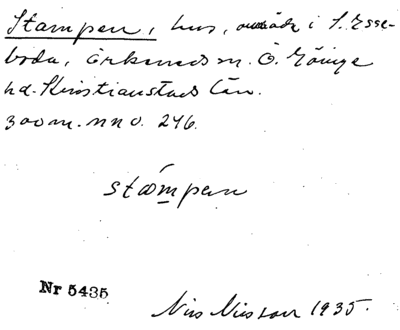 Stampen, hus, område i S. Esse-
boda, Örkeneds sn. Ö. Göinge
hd. Kristianstads län.
300 m. nno. 246.
stämpen
Nr 5435
Nils Nilsson 1935.